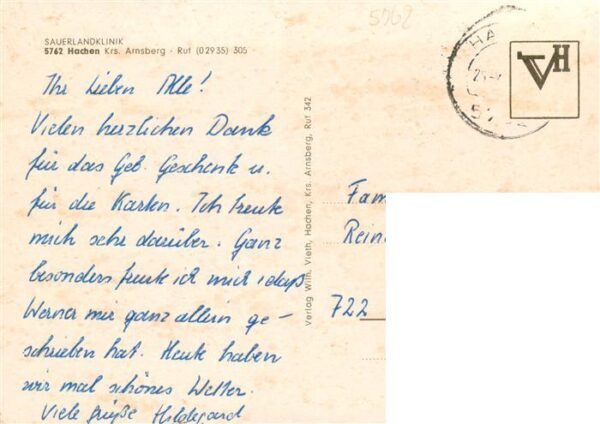 5762
SAUERLANDKLINIK
5762 Hachen Krs. Arnsberg · Ruf (02935) 305
HA
VH
Ihr Lieben Alle!
Vielen herzlichen Dank
für das Geb. Geschenk u.
für die Karten. Ich freute
mich sehr darüber. Ganz
besonders freute ich mich, daß
Werner mir ganz allein ge-
schrieben hat. Heute haben
wir mal schönes Wetter.
Viele Grüße Hildegard
Verlag Wilh. Vieth, Hachen, Krs. Arnsberg, Ruf 342
Fam
Rein
722